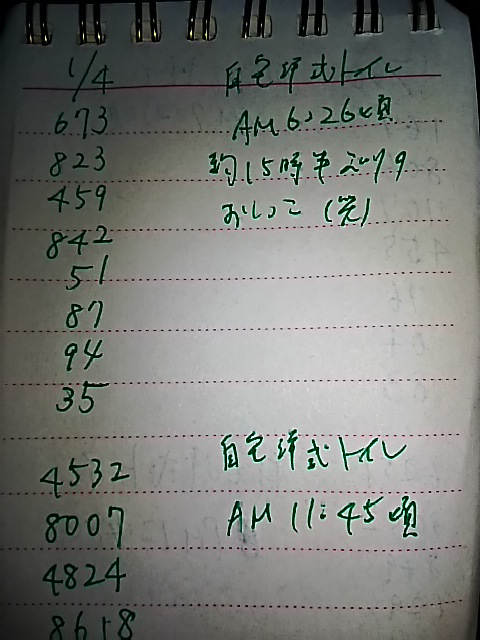 1/4 自宅洋式トイレ
673 AM 6:26頃
823 約15時半ぶりの
459 おしっこ (笑)
842
51
87
94
35
4532 自宅洋式トイレ
8007 AM 11:45頃
4824
8618